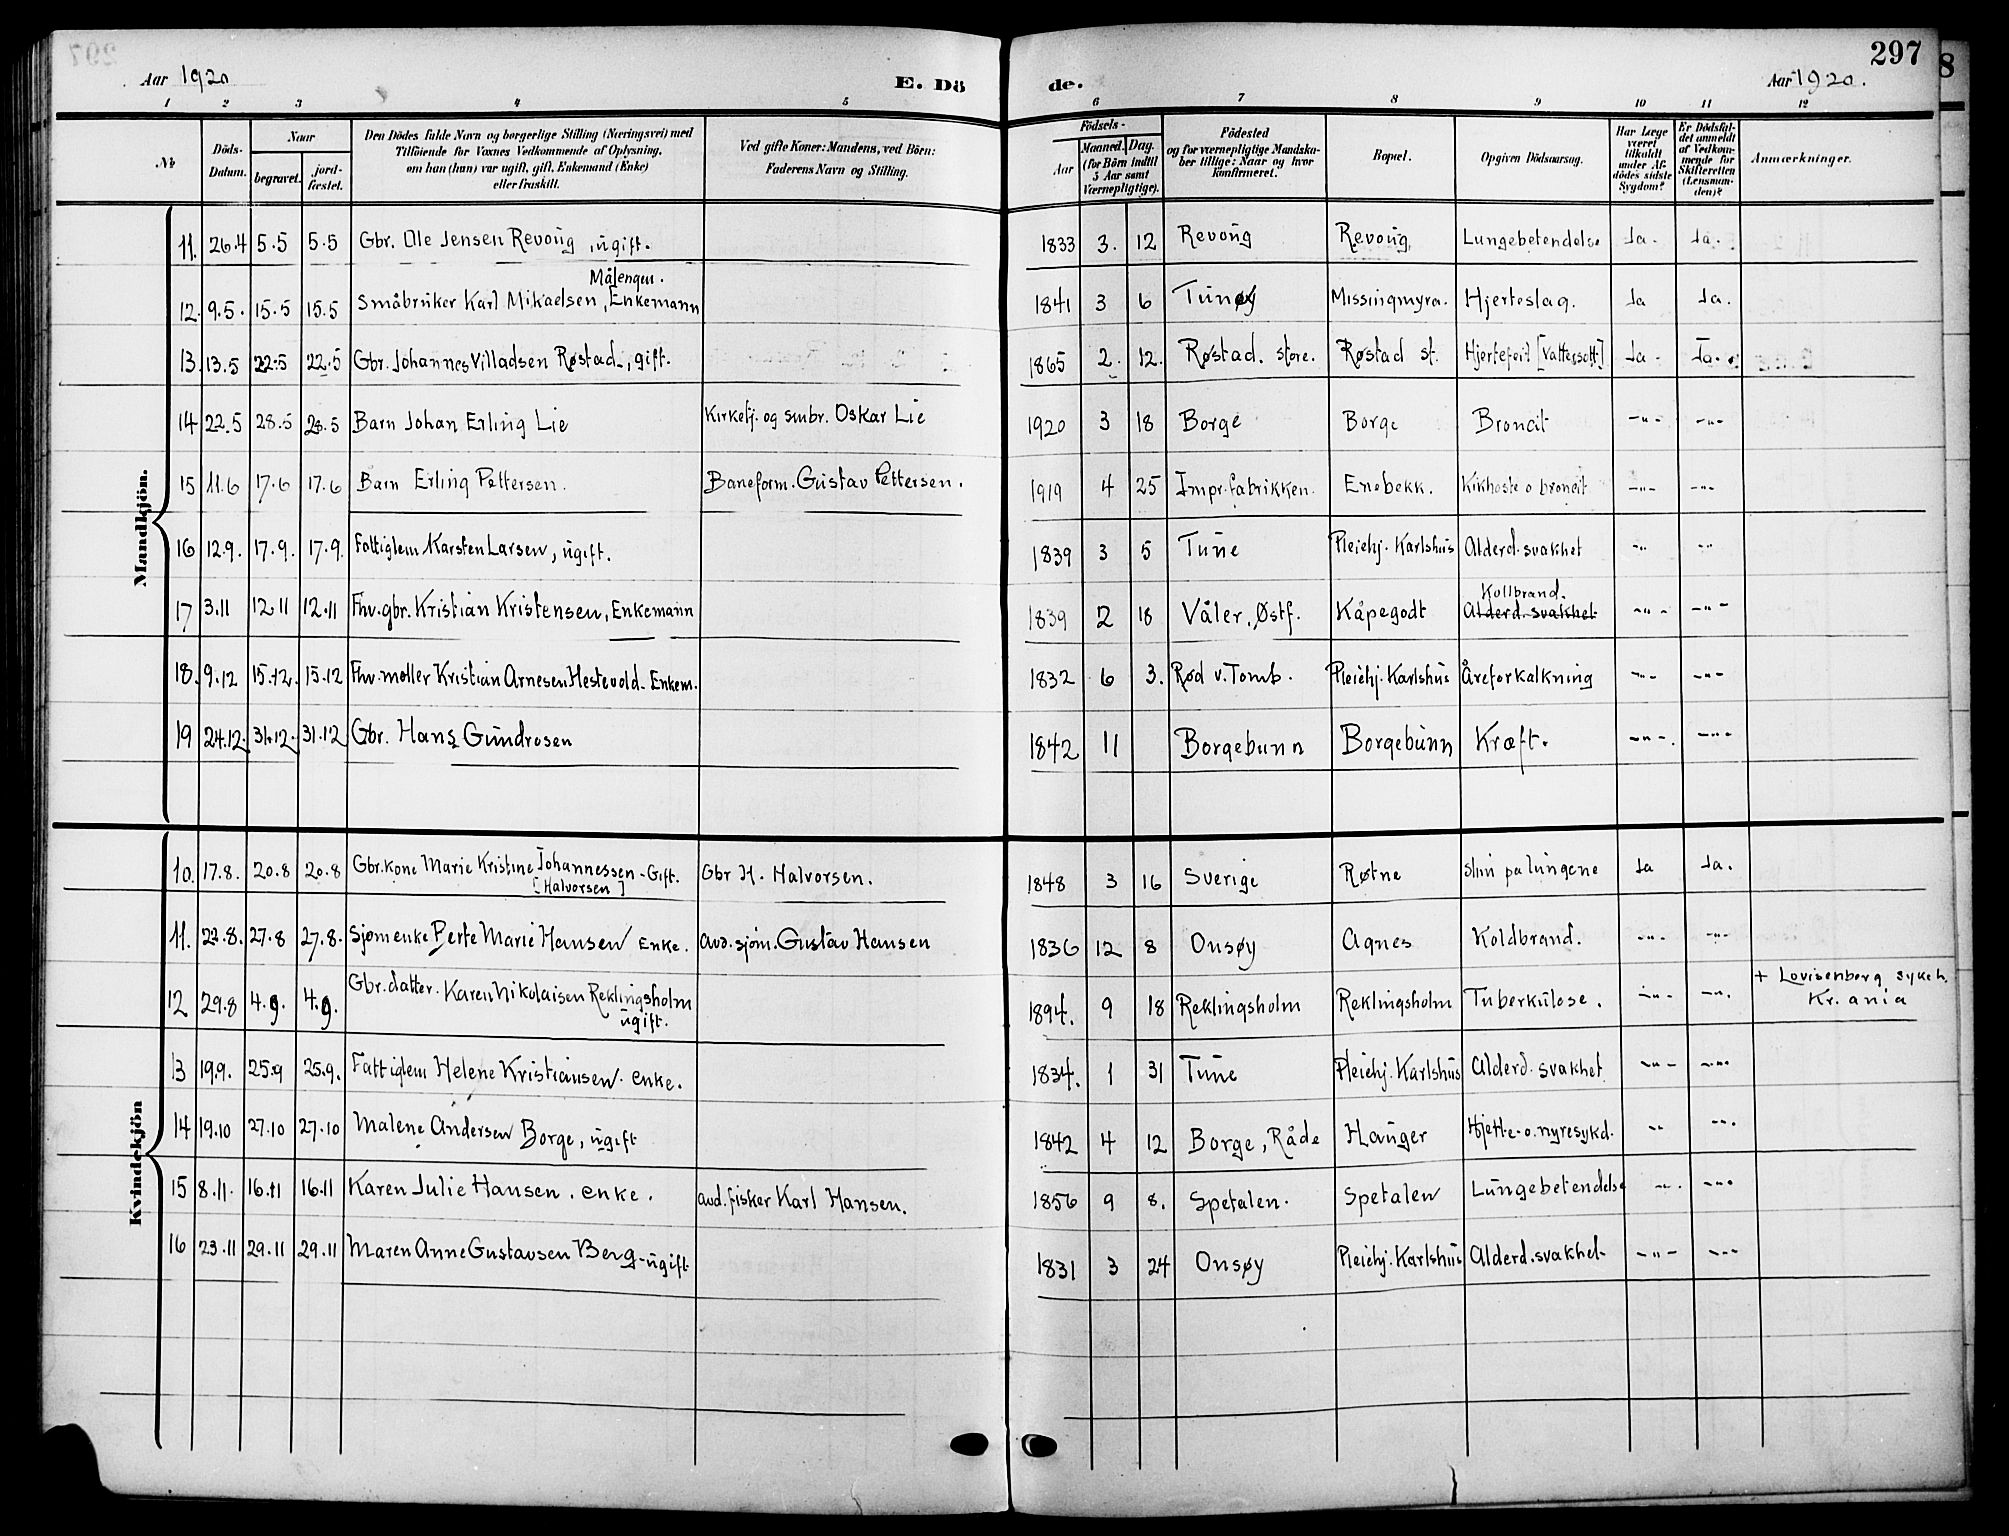 297
Aar 1920 E. Dö de. Aar 1920.
1 2 3 4 5 6 7 8 9 10 11 12
No Döds-Datum. Naar begravet. jord-fæstet. Den Dödes fulde Navn og borgerlige Stilling (Næringsvei) med Tilföiende for Voxnes Vedkommende af Oplysning, om han (hun) var ugift, gift, Enkemand (Enke) eller fraskilt. Ved gifte Koner: Mandens, ved Börn: Faderens Navn og Stilling. Födsels- Aar Maaned. Dag. (for Börn indtil 5 Aar samt Værnepligtige). Födested og for værnepligtige Mandskaber tillige: Naar og hvor konfirmeret. Bopæl. Opgiven Dödsaarsag. Har Læge været tilkaldt under Afdödes sidste Sygdom? Er Dödsfaldet anmeldt af Vedkommende for Skifteretten (Lensmanden)? Anmærkninger.
Mandkjön.
11. 26.4 5.5 5.5 Gbr. Ole Jensen Revoug, ugift. 1833 3. 12 Revoug Revoug, Lungebetendelse Ja. Ja.
Målengen.
12. 9.5. 15.5 15.5 Småbruker Karl Mikaelsen, Enkemann 1841 3 6 Tunøy Missingmyra. Hjerteslag. Ja Ja.
13. 13.5 22.5 22.5 Gbr. Johannes Villadsen Røstad, gift. 1865 2. 12. Røstad. store. Røstad st. Hjertefeil [Vattersott] Ja. Ja.
14 22.5 28.5 28.5 Barn Johan Erling Lie Kirketj. og smbr. Oskar Lie 1920 3 18 Borge Borge Broncit -"- -"-
15 11.6 17.6 17.6 Barn Erling Pettersen. Baneform. Gustav Pettersen. 1919 4 25 Impr. fabrikken. Enebekk. Kikhoste o broncit -"- -"-
16 12.9. 17.9. 17.9. Fattiglem Karsten Larsen, ugift. 1839 3 5 Tune Pleiehj. Karlshus Alderd. svakhet -"- -"-
Kollbrand.
17 3.11 12.11 12.11 Fhv. gbr. Kristian Kristensen, Enkemann 1839 2 18 Våler, Østf. Kåpegodt Alderd. svakhet -"- -"-
18. 9.12 15.12. 15.12 Fhv. møller Kristian Arnesen Hestevold. Enkem. 1832 6 3. Rød v. Tomb. Pleiehj. Karlshus Åreforkalkning -"- -"-
19 24.12. 31.12. 31.12 Gbr. Hans Gundrosen 1842 11 Borgebunn Borgebunn Kræft. -"-. -"-
Kvindekjön
10. 17.8. 20.8 20.8 Gbr.kone Marie Kristine Johannessen - Gift. Gbr H. Halvorsen. 1848 3 16 Sverige Røtne Slim pa lungene Ja Ja.
[Halvorsen]
11. 22.8. 27.8 27.8. Sjømenke Berte Marie Hansen enke. avd. sjøm. Gustav Hansen 1836 12 8 Onsøy Agnes Koldbrand. -"- -"-
12 29.8 4.9. 4.9. Gbr. datter. Karen Nikolaisen Reklingsholm 1894. 9 18 Reklingsholm Reklingsholm Tuberkulose. -"- -"-. + Lovisenberg sykeh.
ugift. Kr. ania
13 19.9. 25.9 25.9. Fattiglem Helene Kristiansen. enke. 1834. 1 31 Tune Pleiehj. Karlshus Alderd. svakhet -"- -"-
14 19.10 27.10 27.10 Malene Andersen Borge, ugift 1842 4 12 Borge, Råde Hauger Hjerte- o. nyresykd. -"- -"-.
15 8.11. 16.11 16.11 Karen Julie Hansen. enke. avd. fisker Karl Hansen. 1856 9 8. Spetalen. Spetalen Lungebetendelse -"-. -"-
16 23.11 29.11 29.11 Maren Anne Gustavsen Berg - ugift. 1831 3 24 Onsøy Pleiehj. Karlshus Alderd. svakhet. -"- -"-